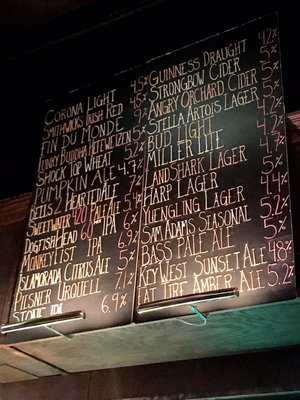 CORONA LIGHT 4.5%
SMITHWICKS IRISH RED 4.5%
FIN DU MONDE 9%
FUNKY BUDDHA HEFEWEIZEN 5%
SHOCK TOP WHEAT 5.2%
PUMPKIN ALE 4.7%
BELLS 2 HEARTED ALE 7%
SWEETWATER 420 PALE ALE 5.4%
DOGFISH HEAD 60 IPA 6%
MONKEY FIST IPA 6.9%
ISLAMORADA CITRUS ALE 5%
PILSNER URQUELL
STONE IPA 6.9%
GUINNESS DRAUGHT 4.2%
STRONGBOW CIDER 5%
ANGRY ORCHARD CIDER 5%
STELLA ARTOIS LAGER 5%
BUD LIGHT 4.2%
MILLER LITE 4.2%
LANDSHARK LAGER
HARP LAGER 5%
YUENGLING LAGER
SAM ADAMS SEASONAL 5%
BASS PALE ALE 5%
KEY WEST SUNSET ALE 4.8%
FAT TIRE AMBER ALE 5.2%